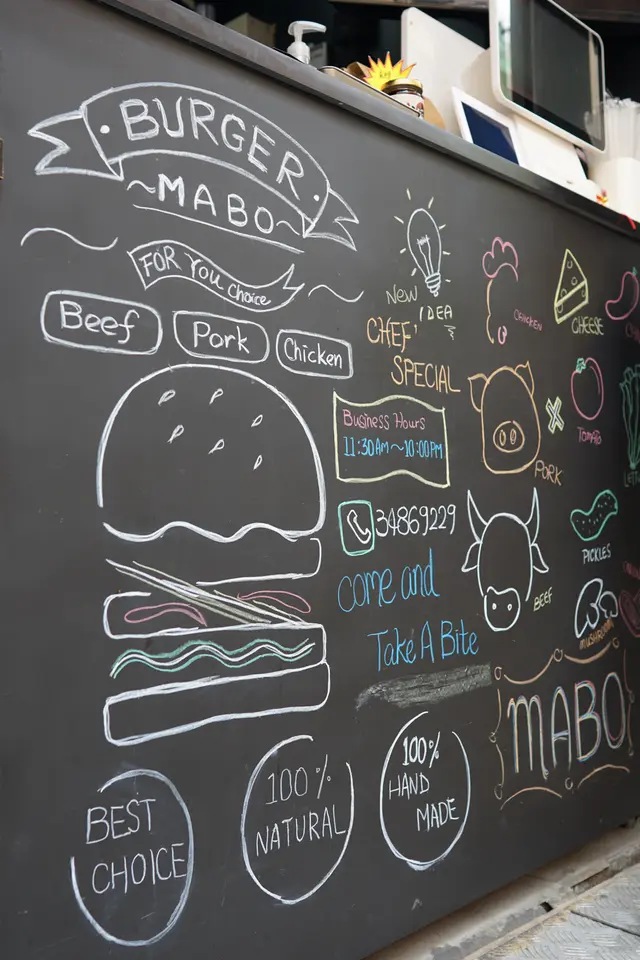 BURGER
~MABO~
FOR YOU Choice
Beef
Pork
Chicken
New
IDEA
CHEF'
SPECIAL
Business Hours
11:30AM~10:00PM
34869229
come and
Take A Bite
CHICKEN
CHEESE
TOMATO
PORK
PICKLES
BEEF
MUSHROOM
MABO
BEST
CHOICE
100%
NATURAL
100%
HAND
MADE